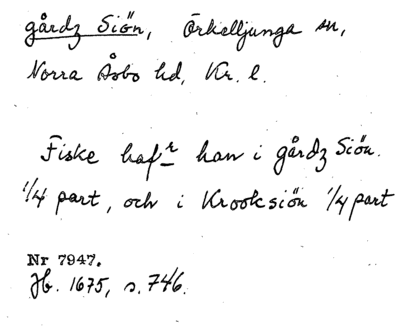 gårdz Siön, Örkelljunga sn,
Norra Åsbo hd, Kr. l.
Fiske hafr han i gårdz Siön.
1/4 part, och i Krooksiön 1/4 part
Nr 7947.
Jb. 1675, s. 746.